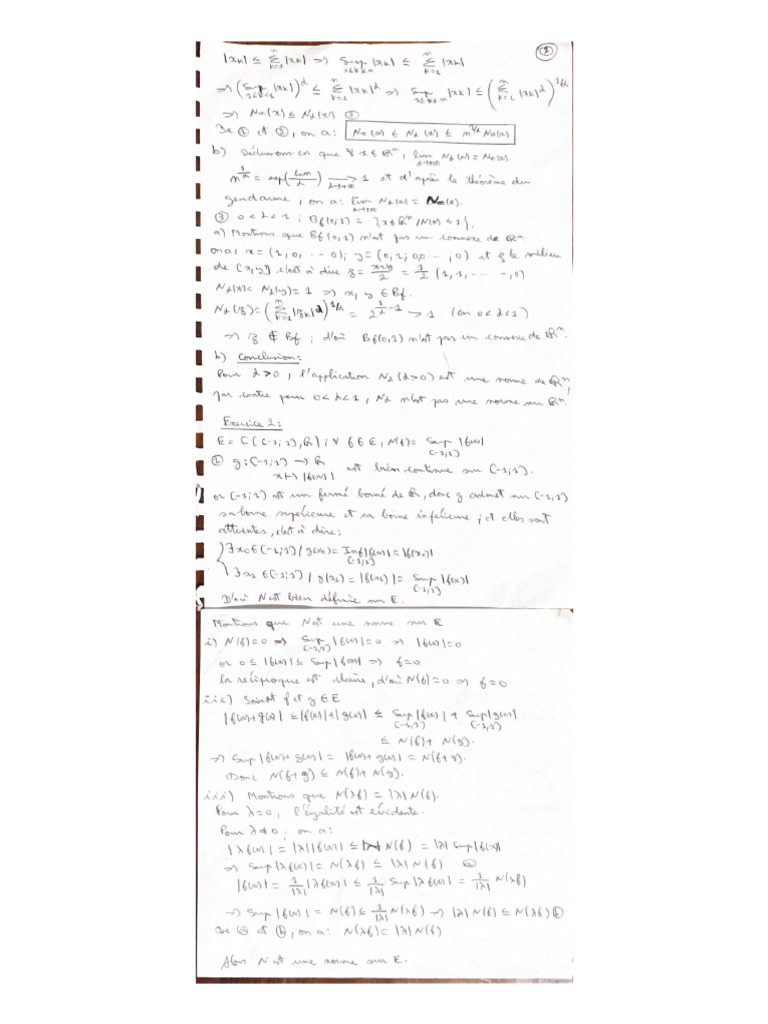 ②
|xₖ| ≤ Σₖ₌₁ⁿ |xₖ| ⇒ Sup₁≤ₖ≤ₙ |xₖ| ≤ Σₖ₌₁ⁿ |xₖ|
⇒ (Sup₁≤ₖ≤ₙ |xₖ|)^α ≤ Σₖ₌₁ⁿ |xₖ|^α ⇒ Sup₁≤ₖ≤ₙ |xₖ| ≤ (Σₖ₌₁ⁿ |xₖ|^α)^1/α
⇒ N∞(x) ≤ Nα(x) ②
De ① et ②, on a: N∞(x) ≤ Nα(x) ≤ n^1/α N∞(x)
b) Déduisons en que ∀ x ∈ ℝⁿ, lim α→+∞ Nα(x) = N∞(x).
n^1/α = exp(ln n/α) → α→+∞ 1 et d'après le théorème du
gendarme, on a: lim α→+∞ Nα(x) = N∞(x).
③ 0 < α < 1 ; Bf(0,1) = {x ∈ ℝⁿ / N(x) ≤ 1}.
a) Montrons que Bf(0,1) n'est pas un convexe de ℝⁿ.
on a: x = (1, 0, -- 0); y = (0, 1, 0, 0 -- , 0) et z le milieu
de [x,y] c'est à dire z = x+y/2 = 1/2 (1, 1, -- --, 0)
Nα(x) = Nα(y) = 1 ⇒ x, y ∈ Bf.
Nα(z) = (Σₖ₌₁ⁿ |zₖ|^α)^1/α = 2^(1/α - 1) > 1 (car 0 < α < 1)
⇒ z ∉ Bf ; d'où Bf(0,1) n'est pas un convexe de ℝⁿ.
b) Conclusion:
Pour α > 0, l'application Nα (α > 0) est une norme de ℝⁿ,
par contre pour 0 < α < 1, Nα n'est pas une norme sur ℝⁿ.
Exercice 2:
E = C([-1;1], ℝ) ; ∀ f ∈ E, N(f) = Sup [-1;1] |f(x)|
① g : [-1;1] → ℝ est bien continue sur [-1;1].
x ↦ |f(x)|
or [-1;1] est un fermé borné de ℝ, donc g admet sur [-1;1]
sa borne supérieure et sa borne inférieure ; et elles sont
atteintes, c'est à dire:
∃ x₀ ∈ [-1;1] / g(x₀) = Inf [-1;1] |f(x)| = |f(x₀)|
∃ x₁ ∈ [-1;1] / g(x₁) = |f(x₁)| = Sup [-1;1] |f(x)|
D'où N est bien définie sur E.
Montrons que N est une norme sur E
i) N(f) = 0 ⇒ Sup [-1;1] |f(x)| = 0 ⇒ |f(x)| = 0
or 0 ≤ |f(x)| ≤ Sup |f(x)| ⇒ f = 0
la réciproque est claire, d'où N(f) = 0 ⇔ f = 0
iii) Soient f et g ∈ E
|f(x) + g(x)| ≤ |f(x)| + |g(x)| ≤ Sup [-1;1] |f(x)| + Sup [-1;1] |g(x)|
≤ N(f) + N(g).
⇒ Sup |f(x) + g(x)| = |f(x) + g(x)| = N(f+g).
Donc N(f+g) ≤ N(f) + N(g).
iii) Montrons que N(λf) = |λ| N(f).
Pour λ = 0, l'égalité est évidente.
Pour λ ≠ 0, on a:
|λf(x)| = |λ| |f(x)| ≤ |λ| N(f) = |λ| Sup |f(x)|
⇒ Sup |λf(x)| = N(λf) ≤ |λ| N(f) ⓐ
|f(x)| = 1/|λ| |λf(x)| ≤ 1/|λ| Sup |λf(x)| = 1/|λ| N(λf)
⇒ Sup |f(x)| = N(f) ≤ 1/|λ| N(λf) ⇒ |λ| N(f) ≤ N(λf) ⓑ
De ⓐ et ⓑ, on a: N(λf) = |λ| N(f)
Alors N est une norme sur E.